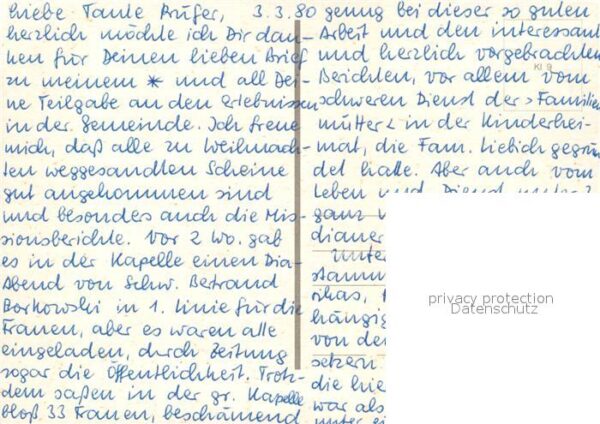 Liebe Tante Prüfer, 3.3.80
herzlich möchte ich Dir dan-
ken für Deinen lieben Brief
zu meinem * und all Dei-
ne Teilgabe an den Erlebnissen
in der Gemeinde. Ich freue
mich, daß alle zu Weihnach-
ten weggesandten Scheine
gut angekommen sind
und besondes auch die Mis-
sionsberichte. Vor 2 Wo. gab
es in der Kapelle einen Dia-
Abend von Schw. Bertrand
Borkowski in 1. Linie für die
Frauen, aber es waren alle
eingeladen, durch Zeitung
sogar die Öffentlichkeit. Trotz-
dem saßen in der gr. Kapelle
bloß 33 Frauen, beschämend
genug bei dieser so guten
Arbeit und den interessant
und herzlich vorgebrachten
Berichten, vor allem vom
schweren Dienst der >Familien
mütter< in der Kinderhei-
mat, die Fam. Lieblich gegrün
det hatte. Aber auch vom
Leben und Dienst
ganz
dianer
Unter
stamm
ikas,
hängig
von de
setzern
die hie
war als
unter ei
KI 9
privacy protection
Datenschutz